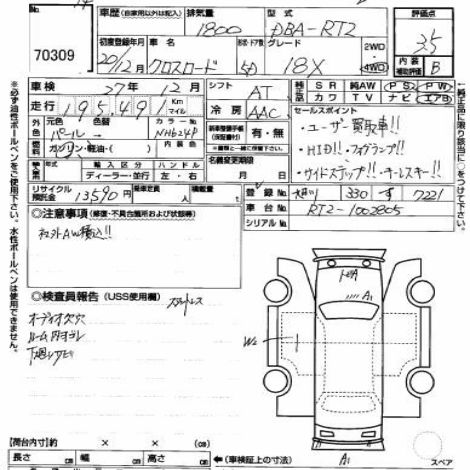 車歴 (自家用以外は記入) 排気量 型式
1800 DBA-RT2
評価点
3.5
70309
初度登録年月 車名 形状・ドア数 グレード 2WD
20/12月 クロスロード 5D 18X 4WD
内装補助評価 B
車検 27年12月 シフト AT
装備品 SR 純AW PS PW カワ TV ナビ エアB
走行 195,491 Km マイル 冷房 AAC
セールスポイント
・ユーザー買取車!!
・HID!!・フォグランプ!!
・サイドステップ!!・キーレスキー!!
外色 元色 色替 カラーNo.
パール NH624P
新車整備手帳(保証書) 有・無
燃料 ガソリン・軽油・( ) 内色
名義変更期限 月 日
輸入車 年 輸入区分 ハンドル
ディーラー・並行 左・右
リサイクル預託金 13590円 乗車定員 人 積載量
登録 No. 330 す 7221
車台 No. RT2-1002805
シリアル No.
◎注意事項 (修復・不具合箇所および状態等)
社外AW積込!!
◎検査員報告 (USS使用欄)
オーディオ欠穴
ルーム内ヨゴレ
下廻りサビ
A1
W2
A1
【荷台内寸】約 × × (cm)
長さ (cm) 幅 (cm) 高さ (cm) ←(車検証上の寸法)
スペア
※必ず油性ボールペンをご使用下さい。水性ボールペンは使用できません。